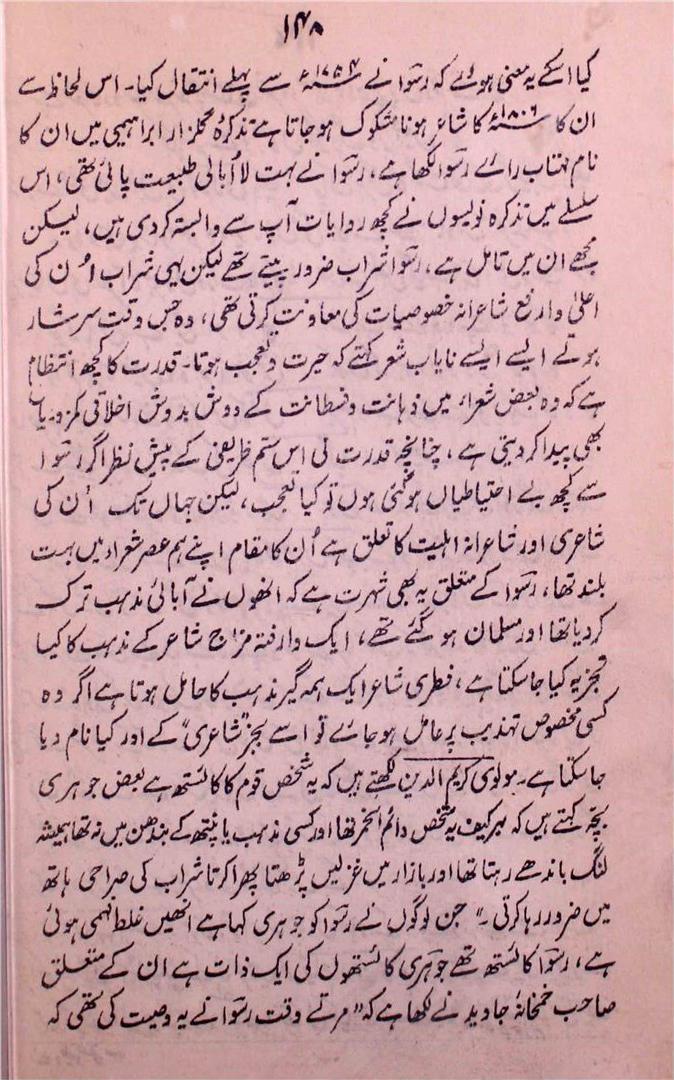 ۱۴۸
کیا اسکے یہ معنی ہوئے کہ رسوا نے ۱۷۵۴ء سے پہلے انتقال کیا۔ اس لحاظ سے
ان کا ۱۸۰۶ء کا شاعر ہونا مشکوک ہو جاتا ہے تذکرہ گلزار ابراہیمی میں ان کا
نام مہتاب رائے رسوا لکھا ہے، رسوا نے بہت لا اُبالی طبیعت پائی تھی، اس
سلسلے میں تذکرہ نویسوں نے کچھ روایات آپ سے وابستہ کر دی ہیں، لیکن
مجھے ان میں تامل ہے، رسوا شراب ضرور پیتے تھے لیکن یہی شراب اُن کی
اعلیٰ و ارفع شاعرانہ خصوصیات کی معاونت کرتی تھی، وہ جس وقت سرشار
ہوتے ایسے ایسے نایاب شعر کہتے کہ حیرت و تعجب ہوتا۔ قدرت کا کچھ انتظام
ہے کہ وہ بعض شعراء میں ذہانت و فطانت کے دوش بدوش اخلاقی کمزوریاں
بھی پیدا کر دیتی ہے، چنانچہ قدرت کی اس ستم ظریفی کے پیش نظر اگر رسوا
سے کچھ بے احتیاطیاں ہو گئی ہوں تو کیا تعجب، لیکن جہاں تک اُن کی
شاعری اور شاعرانہ اہلیت کا تعلق ہے اُن کا مقام اپنے ہم عصر شعراء میں بہت
بلند تھا، رسوا کے متعلق یہ بھی شہرت ہے کہ انھوں نے آبائی مذہب ترک
کر دیا تھا اور مسلمان ہو گئے تھے، ایک وارفتہ مزاج شاعر کے مذہب کا کیا
تجزیہ کیا جا سکتا ہے، فطری شاعر ایک ہمہ گیر مذہب کا حامل ہوتا ہے اگر وہ
کسی مخصوص تہذیب پر عامل ہو جائے تو اسے بجز "شاعری" کے اور کیا نام دیا
جا سکتا ہے۔ مولوی کریم الدین لکھتے ہیں کہ یہ شخص قوم کا کائستھ ہے بعض جوہری
بچہ کہتے ہیں کہ بہرکیف یہ شخص دائم الخمر تھا اور کسی مذہب یا پنتھ کے بندھن میں نہ تھا ہمیشہ
لنگ باندھے رہتا تھا اور بازار میں غزلیں پڑھتا پھرا کرتا شراب کی صراحی ہاتھ
میں ضرور رہا کرتی۔" جن لوگوں نے رسوا کو جوہری کہا ہے انھیں غلط فہمی ہوئی
ہے، رسوا کائستھ تھے جوہری کائستھوں کی ایک ذات ہے ان کے متعلق
صاحب خمخانۂ جاوید نے لکھا ہے کہ "مرتے وقت رسوا نے یہ وصیت کی تھی کہ